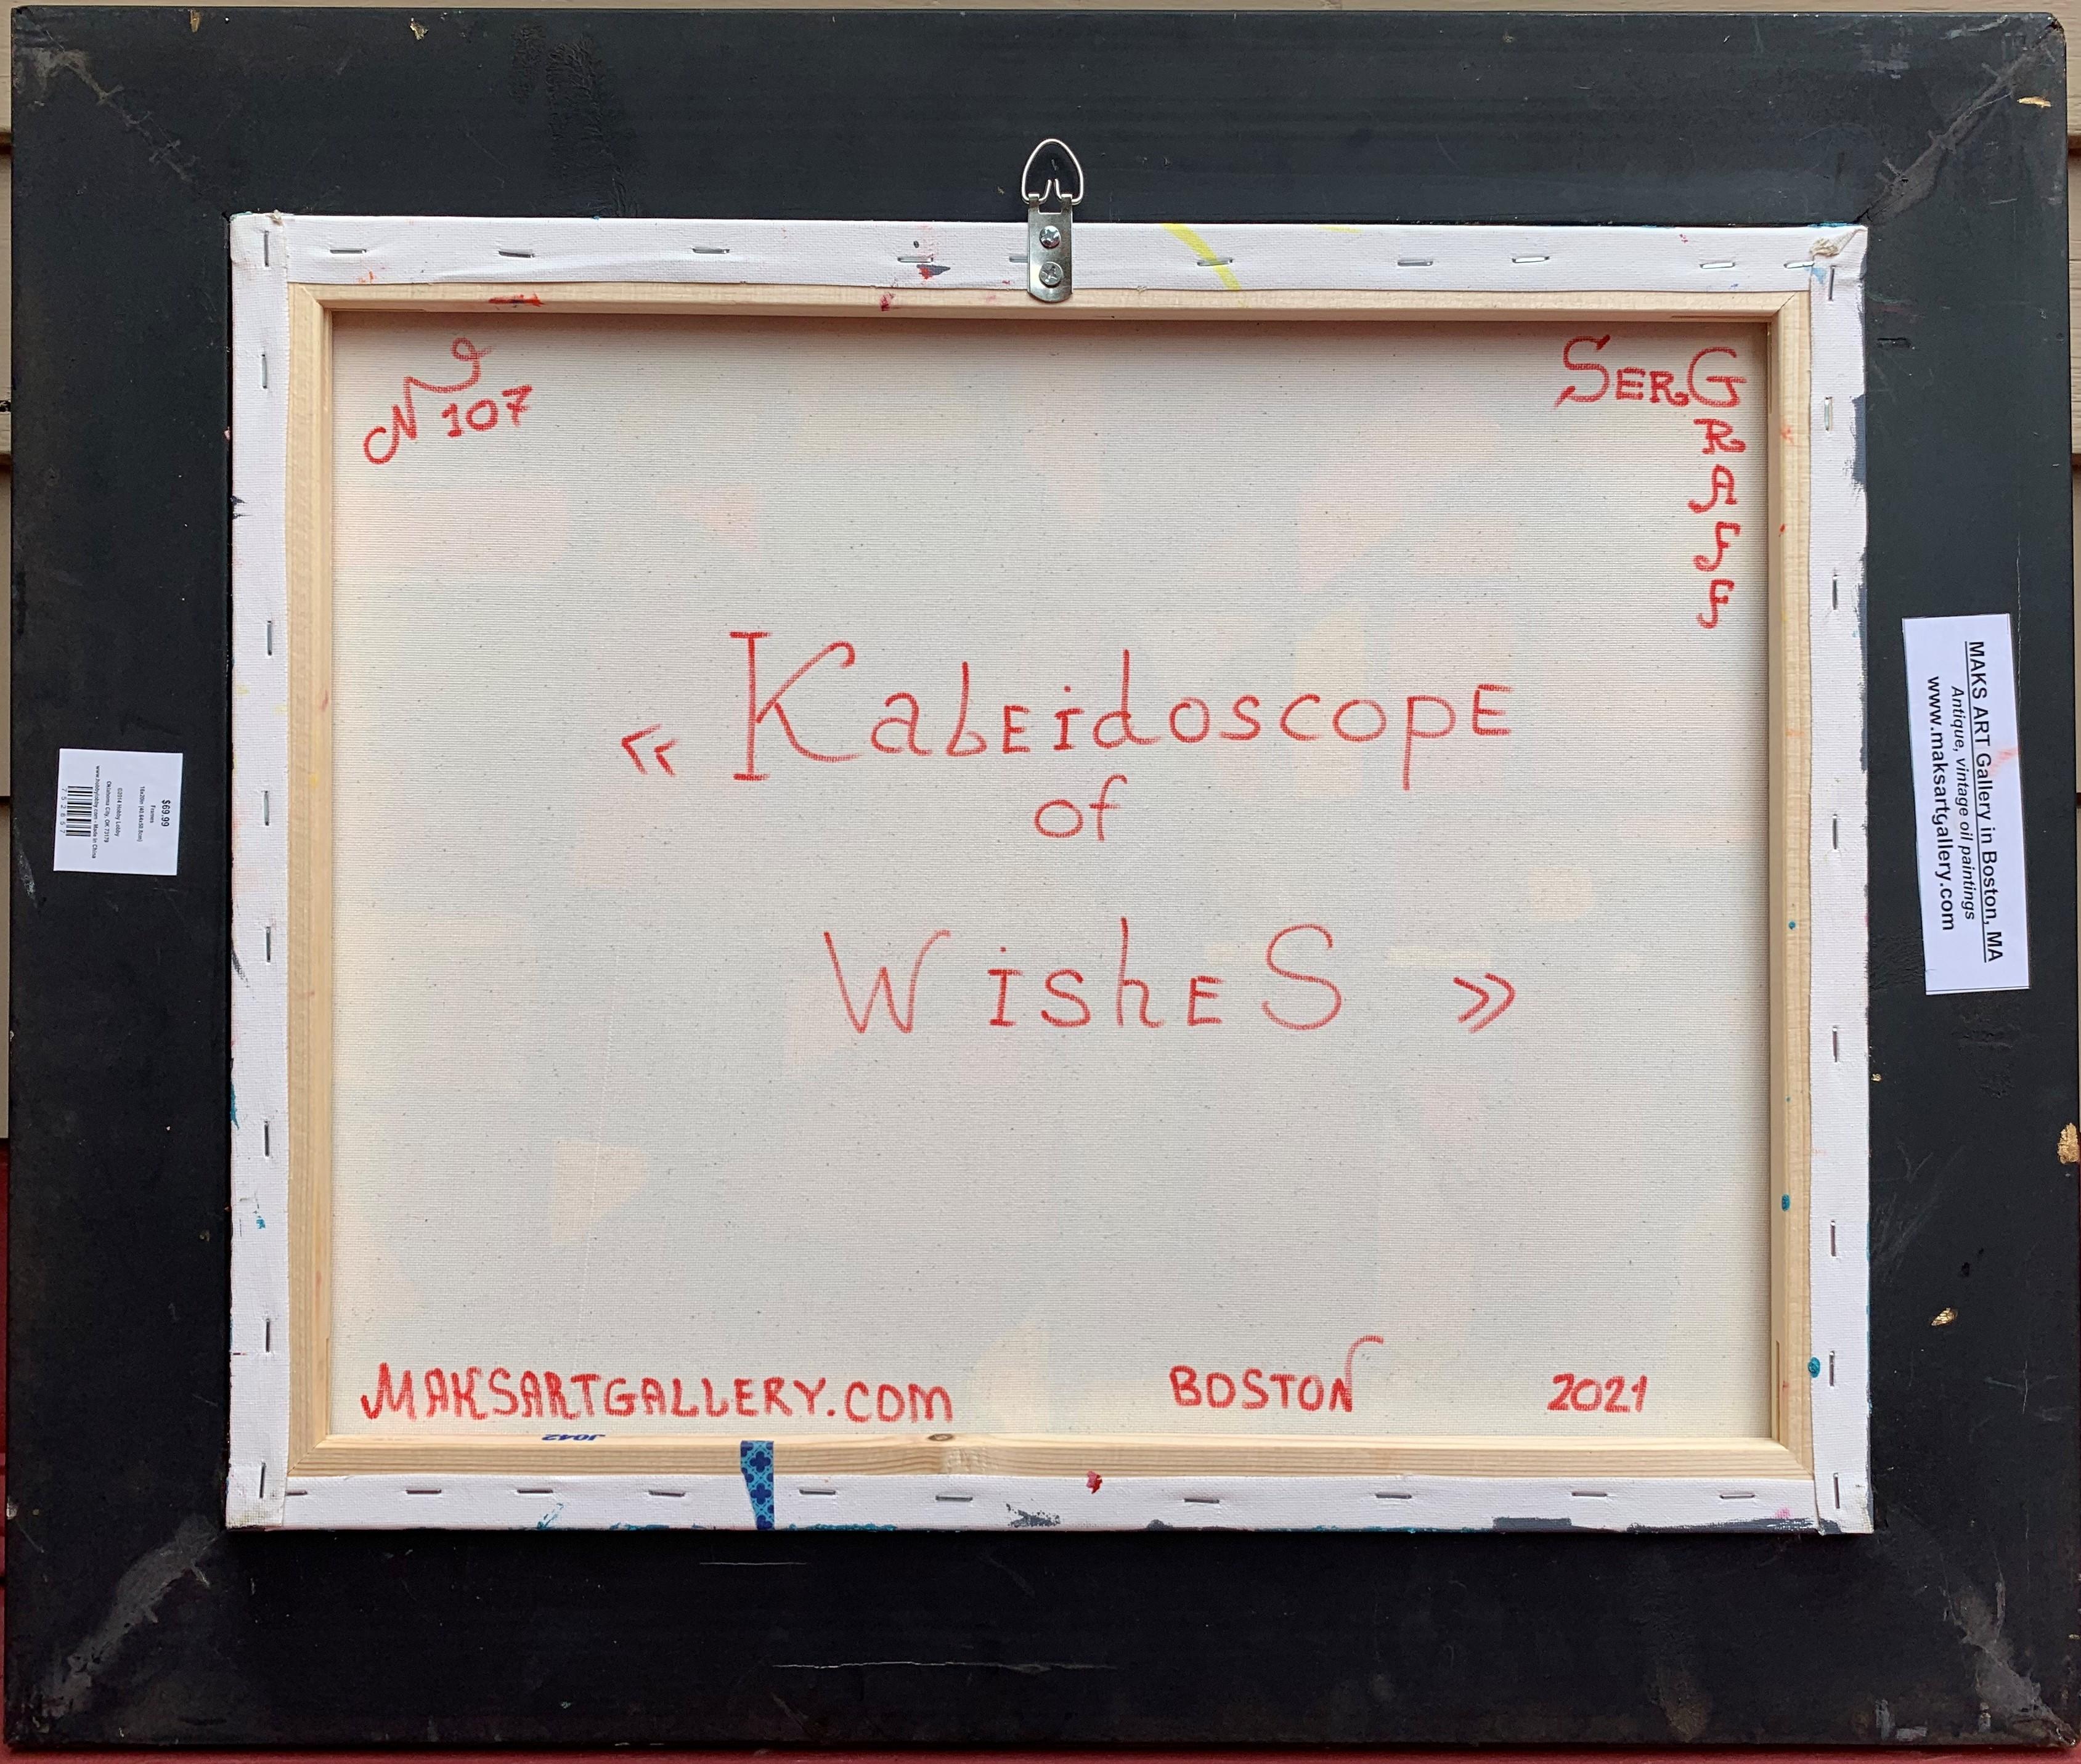 № 107
SERG
GRAFF
« KaLEidoscopE
of
WishES »
MAKSARTGALLERY.COM
BOSTON
2021
J042
MAKS ART Gallery in Boston, MA
Antique, vintage oil paintings
www.maksartgallery.com
$69.99
Frames
16x20in (40.64x50.8cm)
©2014 Hobby Lobby
Oklahoma City, OK 73179
www.hobbylobby.com - Made in China